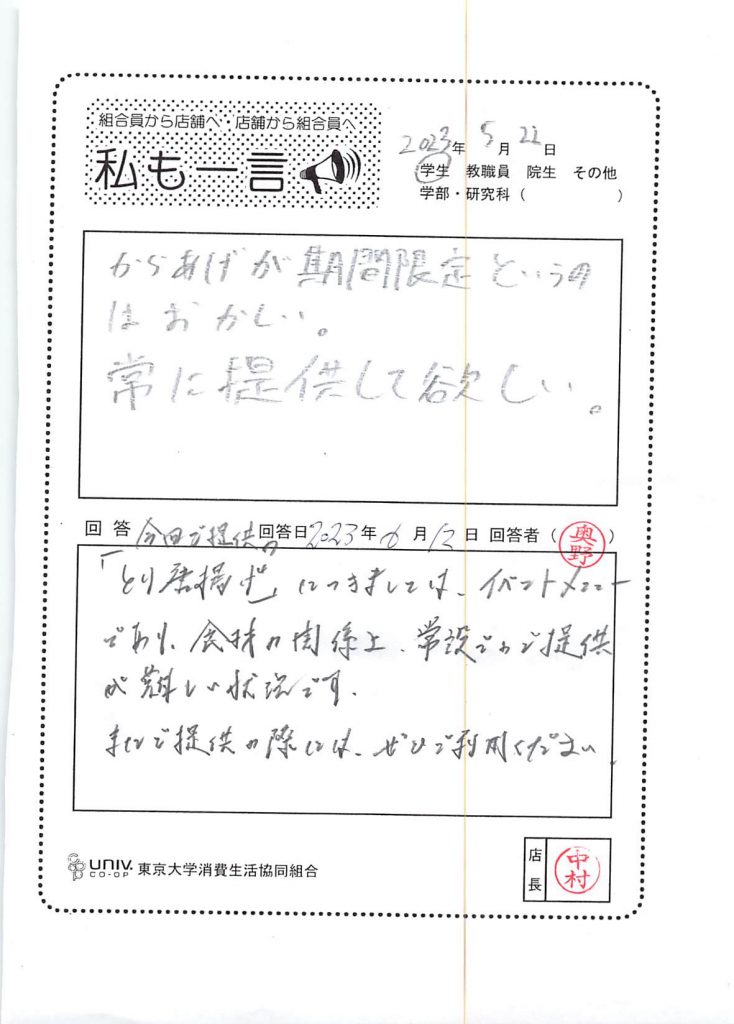 組合員から店舗へ・店舗から組合員へ
私も一言
2023年 5月 22日
学生 教職員 院生 その他
学部・研究科（ ）
からあげが期間限定というの
はおかしい。
常に提供して欲しい。
回答 回答日2023年6月12日 回答者（奥野）
今回ご提供の
「とり唐揚げ」につきましては、イベントメニュー
であり、食材の関係上、常設でのご提供
が難しい状況です。
またご提供の際には、ぜひご利用ください
UNIV. CO-OP 東京大学消費生活協同組合
店長 中村